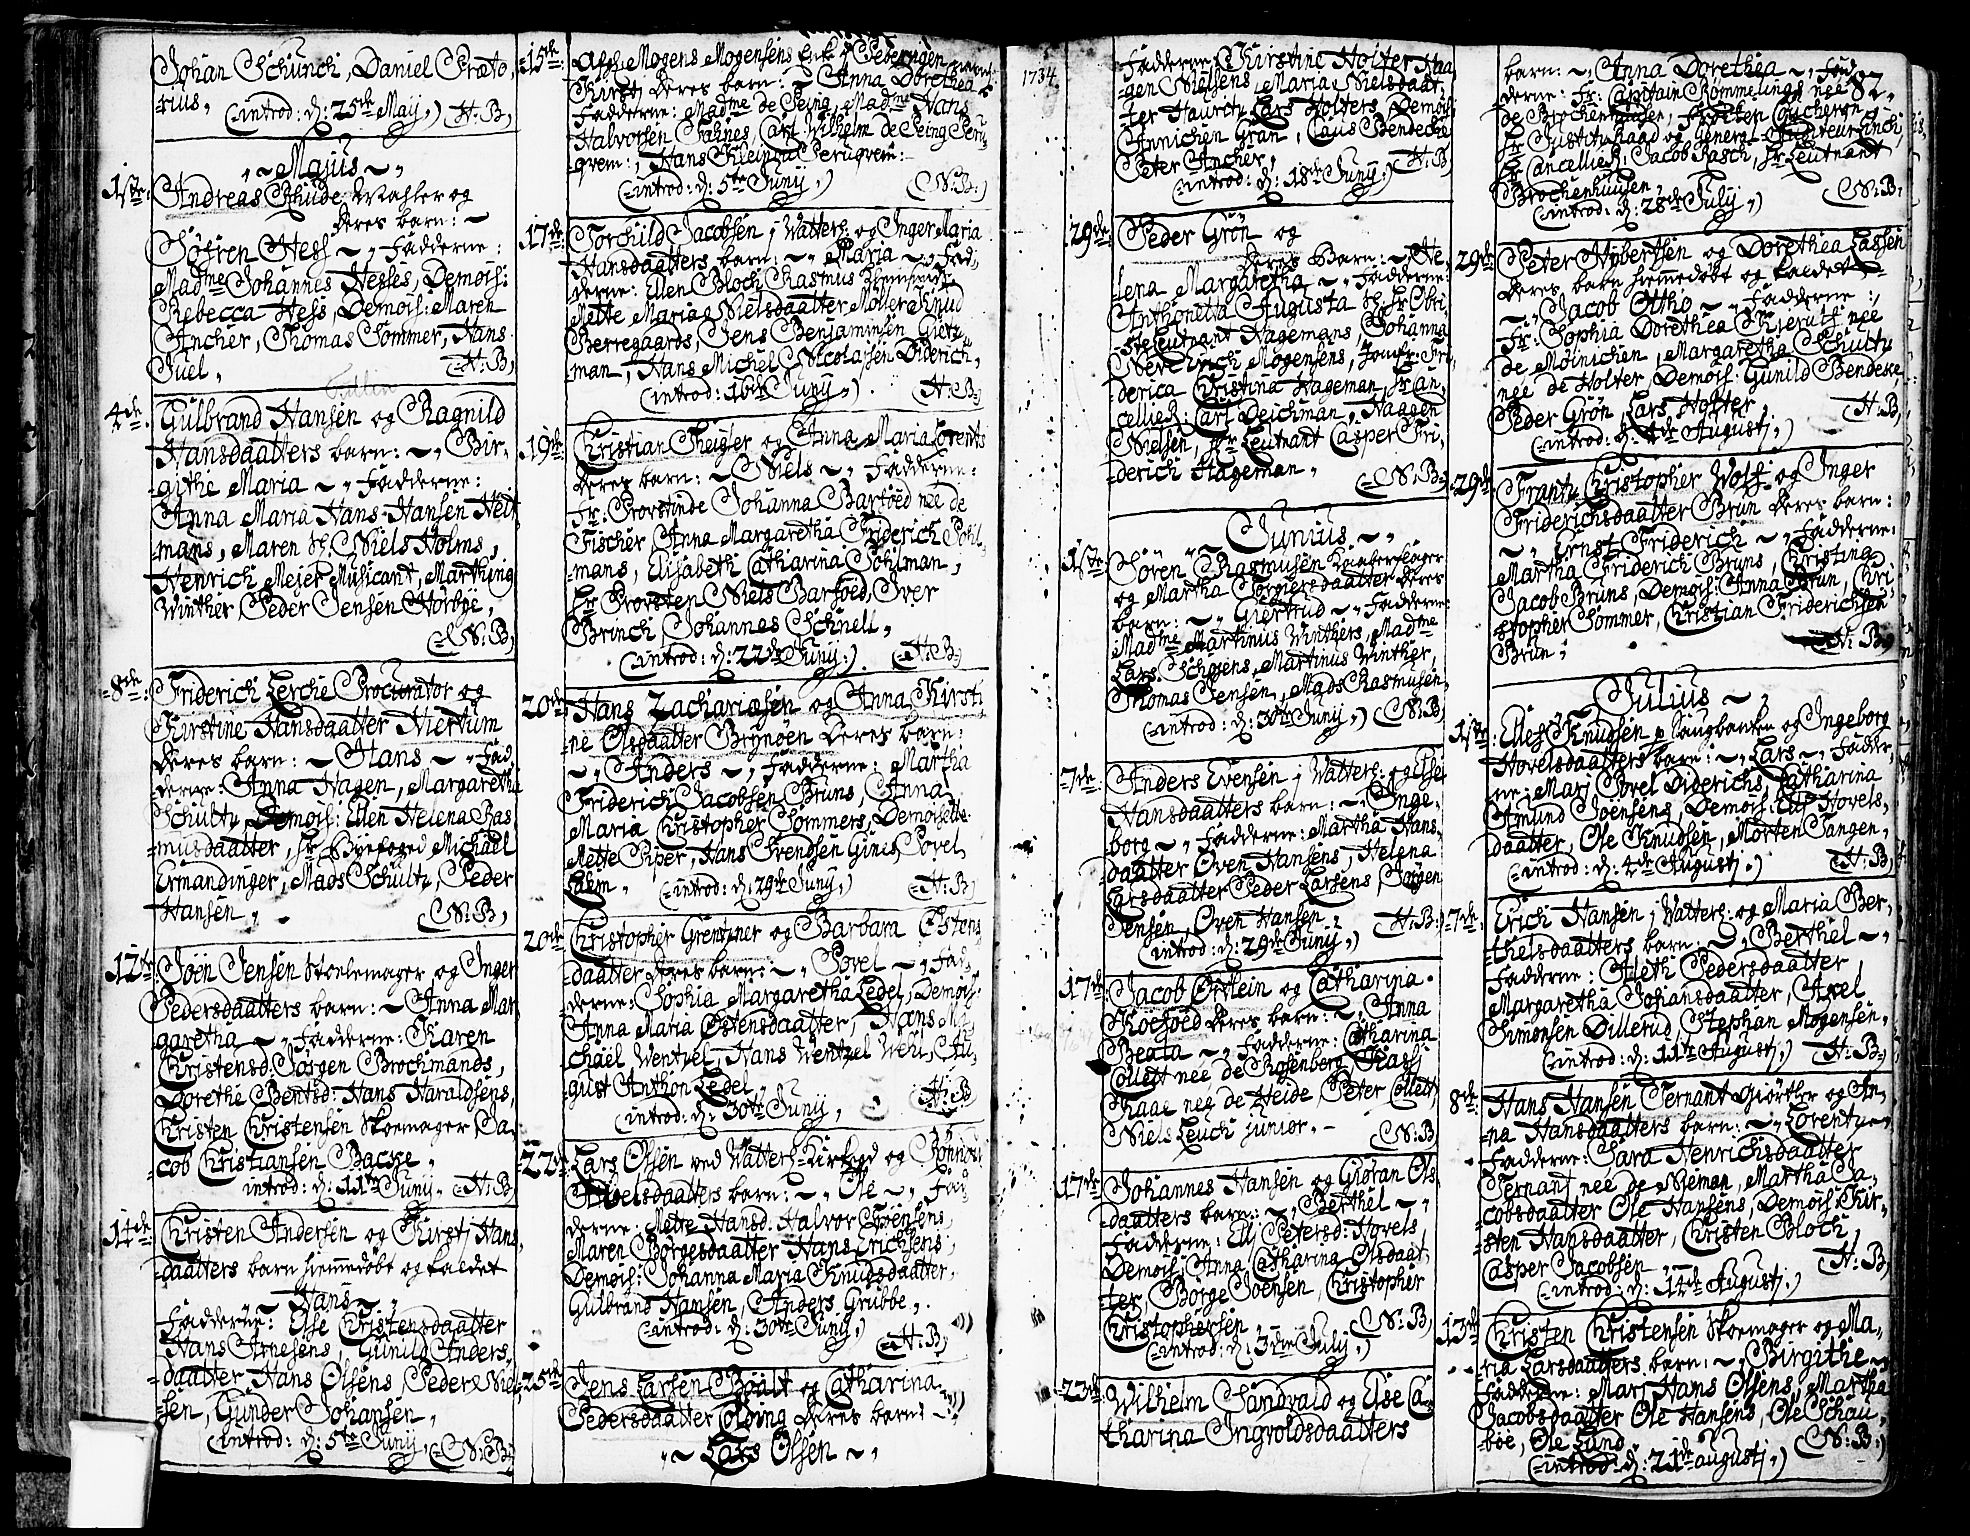 Johan Schunch, Daniel Præto,
rius,
(introd: d: 25de Maij,) H:B,
Majus
1ste: Andreas Schude Mahler og
Deres barn:
Söfren Hess Fadderne:
Madme Johannes Hesses, Demois:
Rebecca Hess, Demois: Maren
Ancher, Thomas Sommer, Hans
Juel, H:B,
4de. Gulbrand Hansen og Ragnild
Hansdaatters barn: Bir,
githe Maria Fadderne:
Anna Maria Hans Hansen Heit
mans, Maren Sl: Niels Holms,
Henrich Mejer Musicant, Marthing
Winther, Peder Jensen Störbÿe,
N:B,
8de: Friderich Lerche Procurator og
Kirstine Hansdaatter Hiertum
Deres barn: Hans Fad
derne: Anna Hagen, Margaretha
Schultz, Demois: Ellen Helena Ras
musdaatter, Hr Byefoged Michael
Ermandinger, Mads Schultz, Peder
Hansen, N:B,
12te Joen Jensen Stoelemager og Inger
Pedersdaatters barn: Anna Mar
garetha Fadderne: Karen
Christensd: Jörgen Brochmands,
Dorethe Bentsd: Hans Haraldsens,
Christen Christensen Skoemager, Ja,
cob Christiansen Backe,
introd: d: 11te Junij, H:B,
14de Christen Andersen og Kirstj Hans,
daatters barn hiemmedöbt og kaldet
Hans
Fadderne: Else Christensdaatter
Hans Arnesens, Gunild Anders,
daatter Hans Olsens, Peder Niel
sen, Gunder Johansen,
(introd: d: 5te Junij, N:B,
15de: Mogens Mogensens
Kirst, Deres barn: Anna Dorethea
Fadderne: Madme de Seing, Madme Hans
Halvorsen Carl Wilhelm de Seing Peru
qvem:, Hans Peruqvem:
(introd: d: 5te Junij,) (N:B,)
17de Torchild Jacobsen j Watters: og Inger Maria
Hansdaatters barn: Maria Fad,
derne: Ellen Bloch Rasmus
Mette Maria Nielsdaatter Möller Knud
Berregaards, Jens Benjaminsen Gietz,
man, Hans Michel Nicolajsen Diderich,
(introd: 16de Junij,) H:B,
19de Christian Theigler og Anna Maria Lorents
Deres barn: Niels Fadderne:
Fr: Provstinde Johanna Barfoed nee de
Fischer, Anna Margaretha Friderich Pohl,
mans, Elisabeth Catharina Pohlman,
Hr Provsten Niels Barfoed, Iver
Brinch, Johannes Schnell,
(introd: d: 22de Junij:) H:B,
20de Hans Zachariasen og Anna Kirsti
ne Olsdaatter Brynöen Deres barn:
Anders Fadderne: Martha
Friderich Jacobsen Bruns, Anna
Maria Christopher Sommers, Demoiselle
Mette Piper, Hans Svendsen Ginis, Povel
Lahm, (introd: d: 29de Junij,) H:B,
20de Christopher Grentzner og Barbara Estens
daatter Deres barn: Povel Fad,
derne: Sophia Margaretha Ledel, Demois:
Anna Maria Östensdaatter, Hans Mi
chael Wentzel, Hans Wentzel Wehl, Au,
gust Anthon Ledel,
(introd: d: 30te Junij, H:B
22de Lars Olsen ved Watters: Kirkegd og
Povelsdaatters barn: Ole Fad
derne: Mette Hansd: Halvor Joensens,
Maren Börgesdaatter Hans Erichsens,
Demois: Johanna Maria Knudsdaatter,
Gulbrand Hansen, Anders Grubbe,
(introd: d: 30te Junij,)
H:B,
25de Jens Larsen Böalt og Catharina
Pedersdaatter Colding Deres barn:
Lars Olsen
1734
Fadderne: Kirstine Holter Haa
gen Nielsens, Maria Nielsdaat:
ter Hauritz, Lars Holters, Demois:
Annichen Gran, Claus Bendeche
Peter Ancher, H:B,
(introd: d: 18de Junij,)
29de: Peder Grön og
Deres barn: He,
lena Margaretha Fadderne:
Anthonetta Augusta Sl: Hr Obri,
ste Leutnant Hagemans, Johanna
Neve Erich Mogensens, Jomfr: Fri
derica Christina Hageman, Hr Can,
celliejd: Carl Deichman, Haagen
Nielsen, Hr Leutnant Casper Fri,
derich Hageman,
N:B,
Junius
1ste Sören Rasmusen
og Martha Torgiersdaatter Deres
barn: Giertrud Fadderne:
Madme Martinus Winthers, Madme
Lars Schröens, Martinus Winther,
Thomas Jensen, Mads Rasmusen,
(introd: d: 30te Junij,) N:B,
7de: Anders Evensen j Watters: og Else
Hansdaatters barn: Inge,
borg Fadderne: Martha Hans,
daatter Oven Hansens, Helena
Larsdaatter Peder Larsens, Jörgen
Jensen, Oven Hansen, H:B,
(introd: d: 29de Junij,)
17de Jacob Örtlein og Catharina
Roefoed Deres barn: Anna
Beata Fadderne: Catharina
Collett nee de Rosenberg,
Kaas nee de Heide, Peter Collett
Niels Leuch junior. N:B,
17de Johannes Hansen og Giöran Ols
daatters barn: Berthel
Fadderne: Elj Petersd: Hovels
Demois: Anna Catharina Olsdaat,
ter, Börge Joensen, Christopher
Christophersen, N:B,
(introd: d: 3die Julij,)
23de Wilhelm Sandvald og Else Ca
tharina Ingvoldsdaatters
82
barn: Anna Dorethea Fad
derne: Fr: Capitain Bommelings nee
de Brochenhuusen, Fröiken
Hr Justitzraad og General Auditeur Finch,
Hr Cancellied: Jacob Rasch, Hr Leutnant
Brochenhuusen, N:B,
(introd: d: 28de Julij,)
29de Peter Höbertsen og Dorethea Lassen
Deres barn hiemmedöbt og kaldet
Jacob Ottho Fadderne:,
Fr: Sophia Dorethea Kierulf nee
de Moinichen, Margaretha Schultz
nee de Holter, Demois: Gunild Bendeke,
Peder Grön, Lars Holter, H:B,
(introd: d: 4de Augustj,)
29de Frantz Christopher Wolf og Inger
Friderichsdaatter Brun Deres barn:
Ernst Friderich Fadderne:
Martha Friderich Bruns, Christina
Jacob Bruns, Demois: Anna Brun, Chri
stopher Sommer, Christian Friderichsen
Brun, H:B,
Julius
1ste: Ellef Knudsen p Saugbanken og Ingeborg
Hovelsdaatters barn: Lars Fadder,
ne: Marj Povel Diderichs, Catharina
Amund Joensens, Demois: Elj Hovels,
daatter, Ole Knudsen, Morten Tangen,
(introd: d: 4de Augustj,) H:B,
7de. Erich Hansen j Watters: og Maria Ber,
thelsdaatters barn: Berthel
Fadderne: Aleth Pedersdaatter,
Margaretha Johansdaatter, Axel
Simonsen Dillerud, Stephan Mogensen,
(introd: d: 11te Augustj,) H:B,
8de Hans Hansen Ternant Giörtler og An,
na Hansdaatters barn: Lorentz
Fadderne: Sara Henrichsdaatter
Ternant nee de Nieman, Martha Ja,
cobsdaatter Ole Hansens, Demois: Kir,
sten Hansdaatter, Christen Bloch,
Casper Jacobsen, H:B,
(introd: d: 14de Augustj,)
13de Christen Christensen Skoemager og Ma,
ria Larsdaatters barn: Birgithe
Fadderne: Marj Hans Olsens, Martha
Jacobsdaatter Ole Hansens, Ole Schau,
böe, Ole Lund N:B,
(introd: d: 21de augustj,)